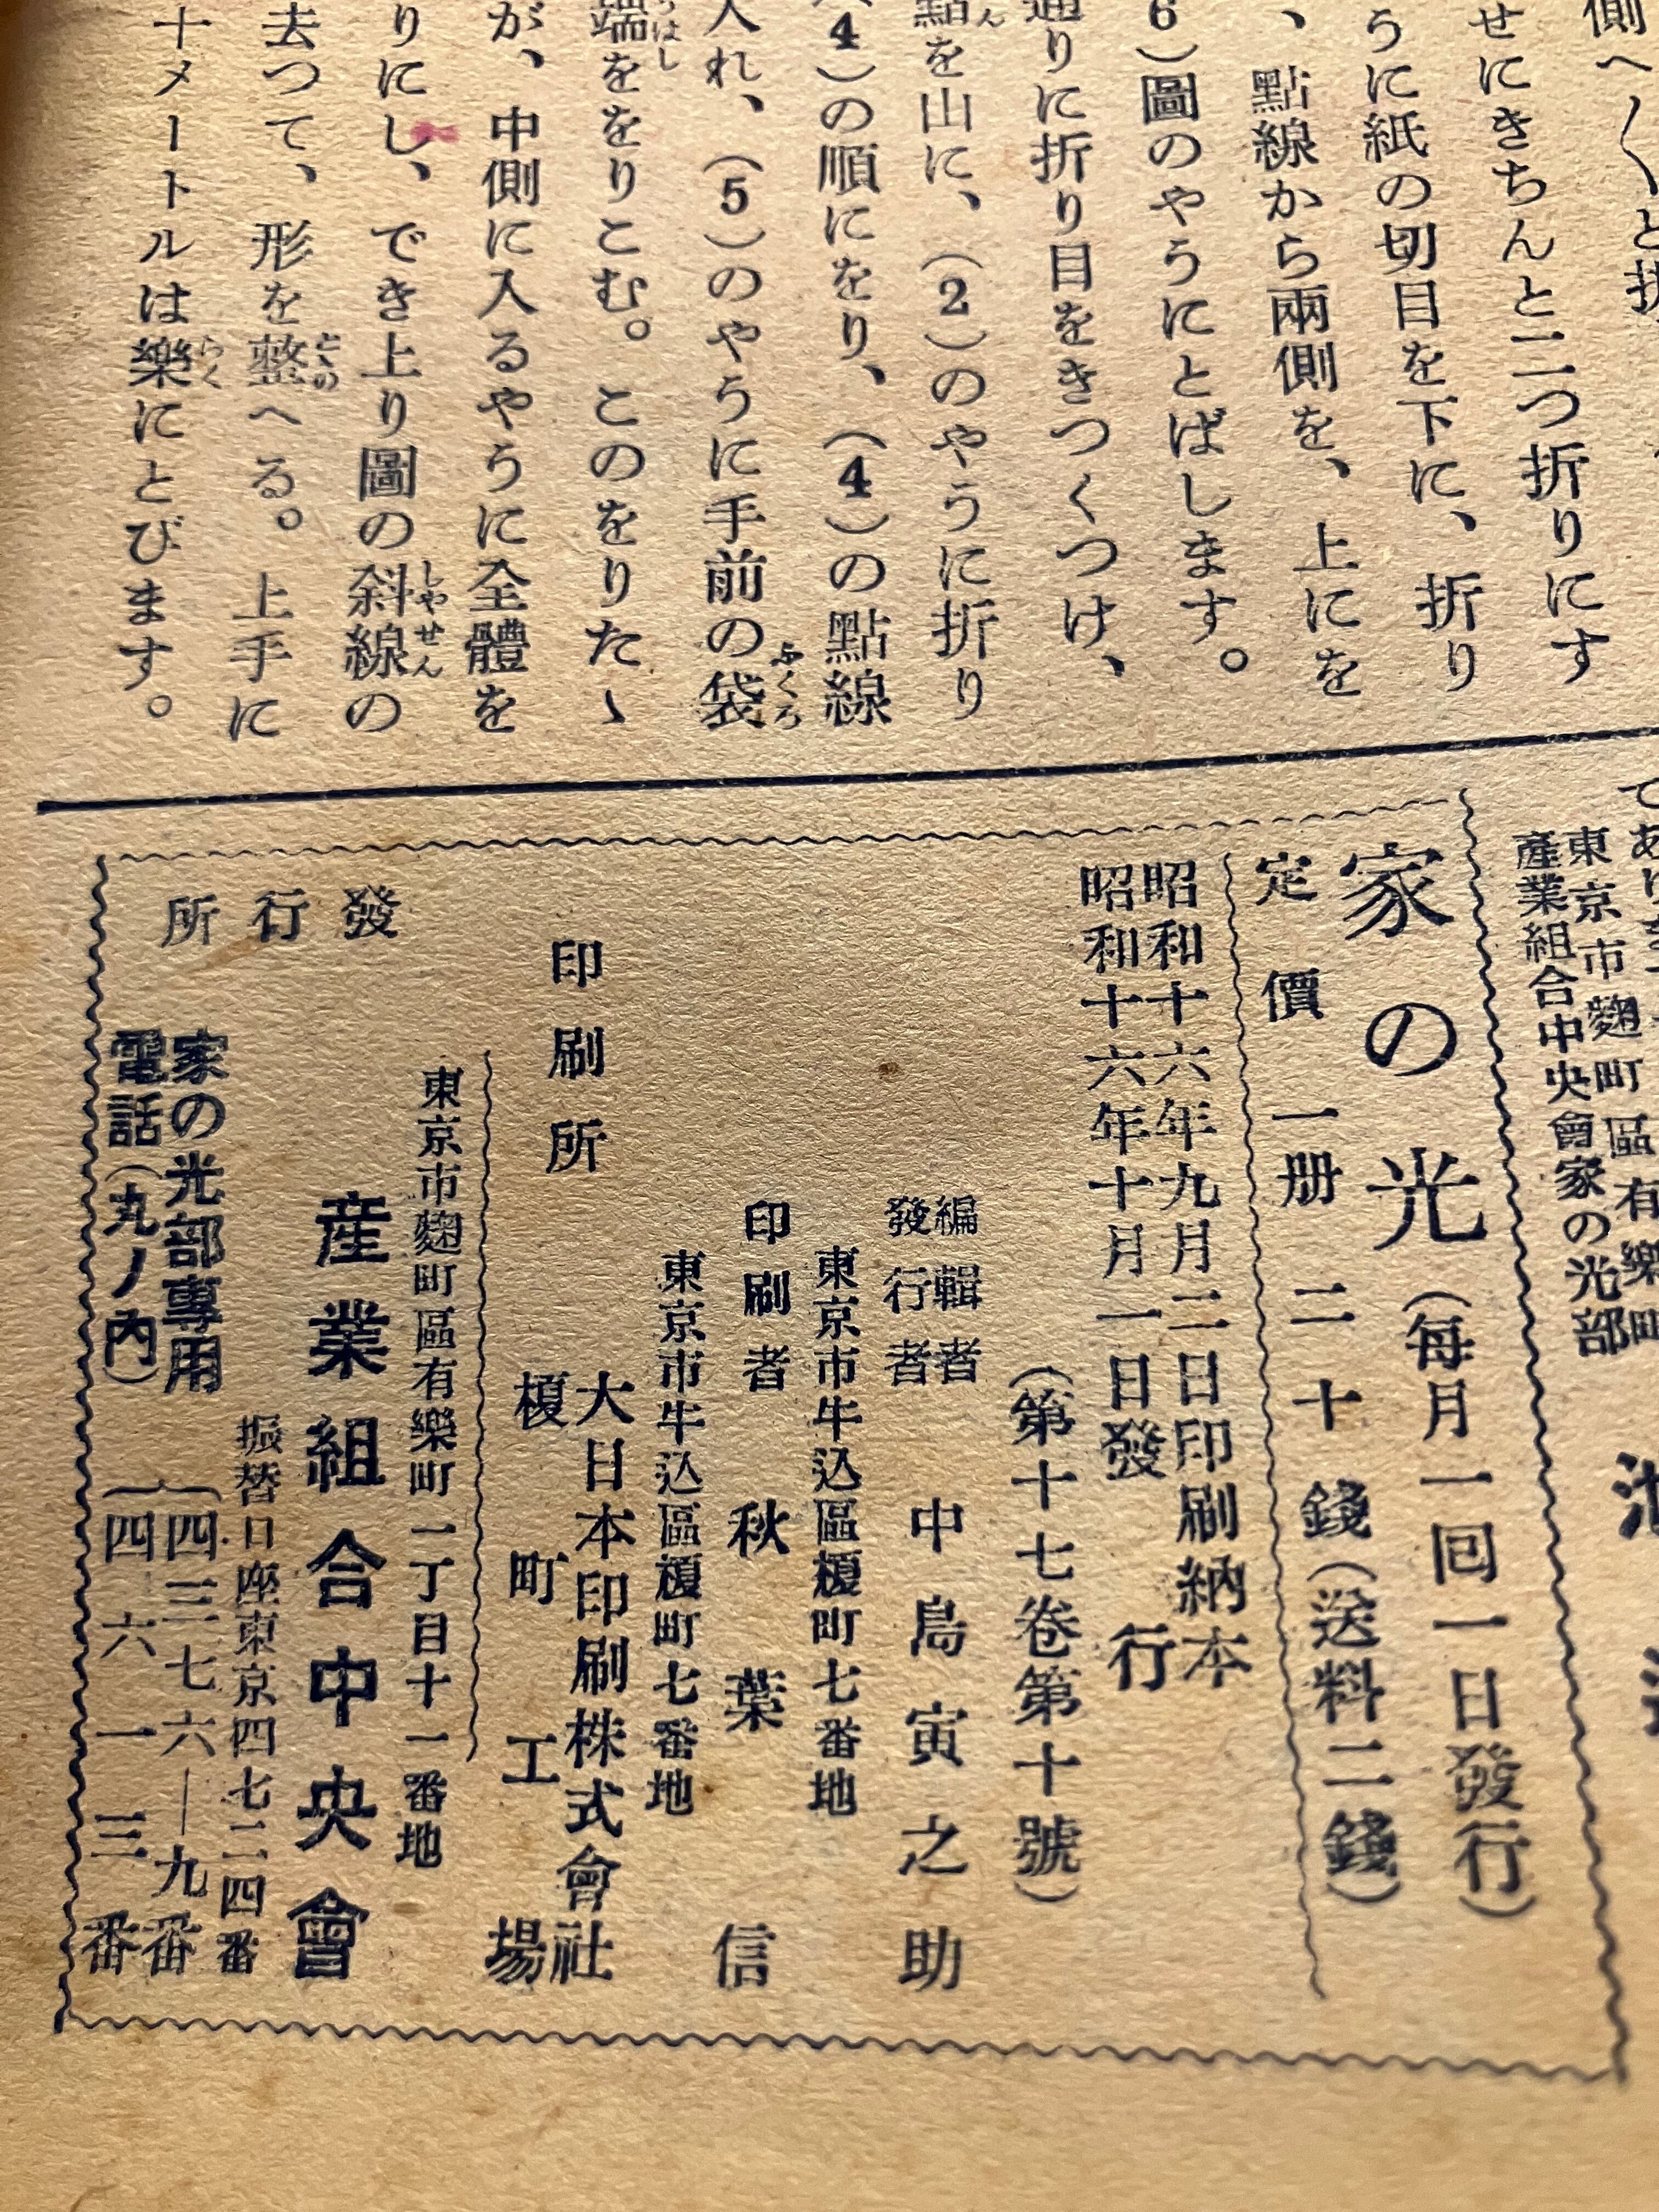 側へ〱と折
せにきちんと二つ折りにす
うに紙の切目を下に、折り
、點線から兩側を、上にを
6)圖のやうにとばします。
通りに折り目をきつくつけ、
點を山に、(2)のやうに折り
(4)の順にをり、(4)の點線
入れ、(5)のやうに手前の袋
端ををりこむ。このをりたゝ
が、中側に入るやうに全體を
りにし、でき上り圖の斜線の
去つて、形を整へる。上手に
十メートルは樂にとびます。
東京市麴町區有樂町
産業組合中央會家の光部
家の光(每月一回一日發行)
定價一册二十錢(送料二錢)
昭和十六年九月二日印刷納本
昭和十六年十月一日發行
(第十七卷第十號)
編輯者
發行者
中島寅之助
東京市牛込區榎町七番地
印刷者 秋葉信
東京市牛込區榎町七番地
印刷所
大日本印刷株式會社
榎町工場
東京市麴町區有樂町一丁目十一番地
發行所
産業組合中央會
振替口座東京四七二四番
家の光部專用
電話(丸ノ內)
四三七六―九番
四六一三番